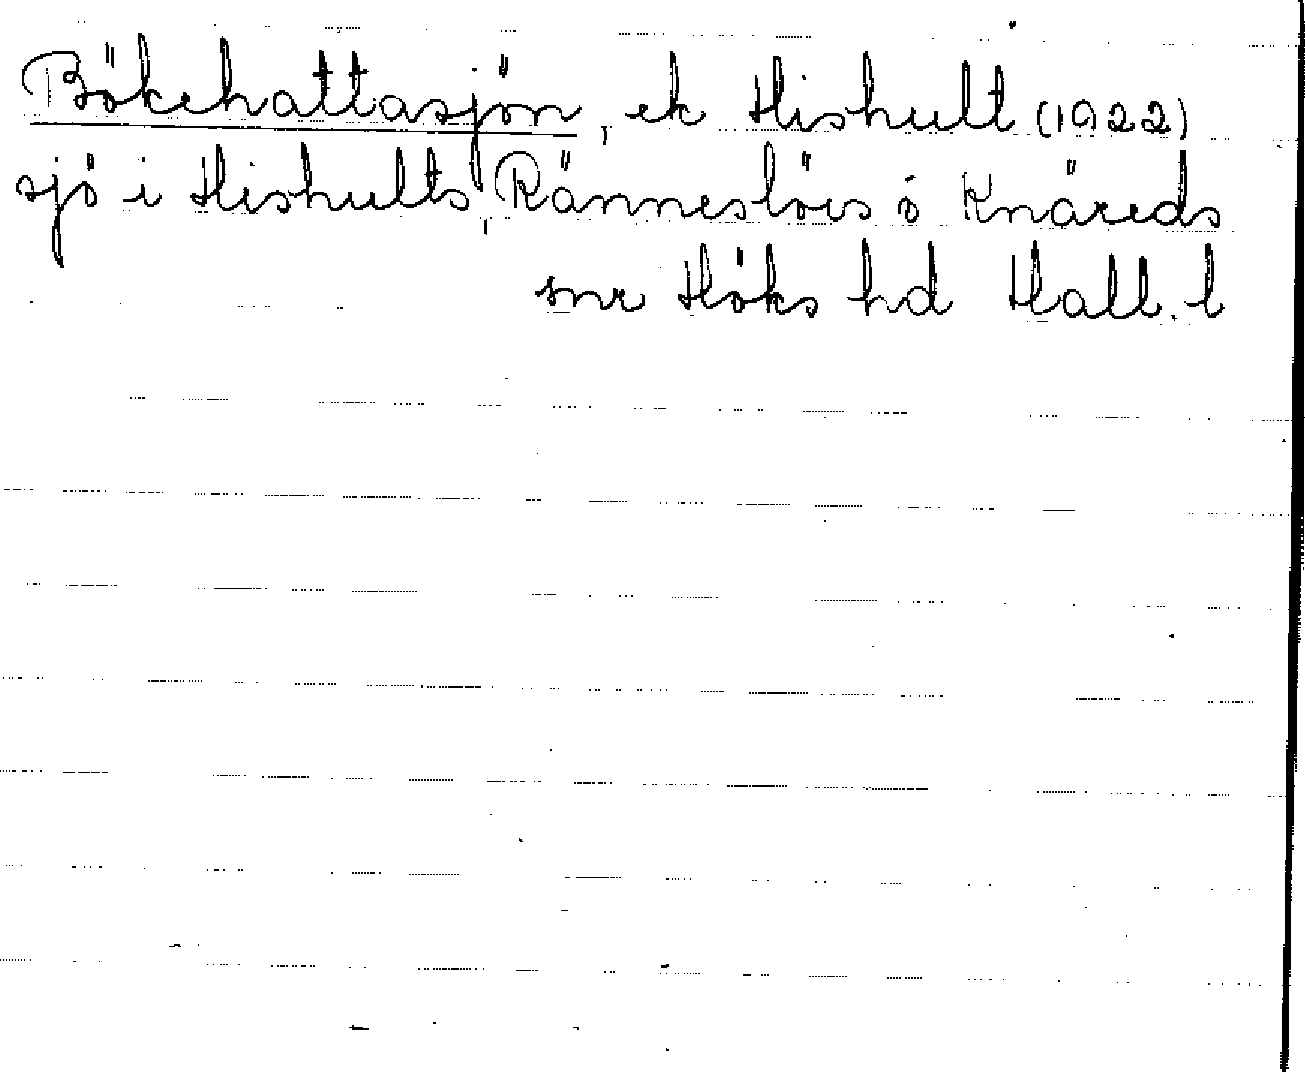 Bökehattasjön, ek Hishult (1922)
sjö i Hishults, Ränneslövs o Knäreds
snr Höks hd Hall. l